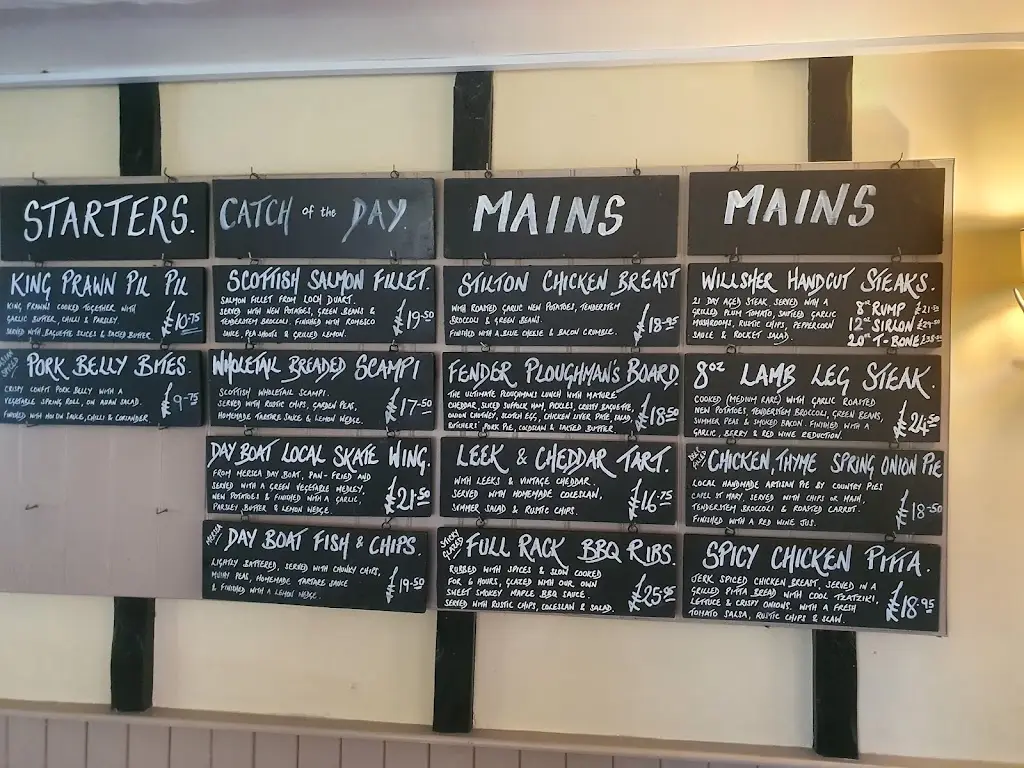 STARTERS.
KING PRAWN PIL PIL
KING PRAWNS COOKED TOGETHER WITH
GARLIC BUTTER, CHILLI & PARSLEY.
SERVED WITH BAGUETTE SLICES & SALTED BUTTER.
£10-75
PORK BELLY BITES.
CRISPY CONFIT PORK BELLY WITH A
VEGETABLE SPRING ROLL, ON ASIAN SALAD.
FINISHED WITH HOISIN SAUCE, CHILLI & CORIANDER.
£9-75
CATCH of the DAY.
SCOTTISH SALMON FILLET.
SALMON FILLET FROM LOCH DUART.
SERVED WITH NEW POTATOES, GREEN BEANS &
TENDERSTEM BROCCOLI. FINISHED WITH ROMESCO
SAUCE, PEA SHOOTS & GRILLED LEMON.
£19-50
WHOLETAIL BREADED SCAMPI
SCOTTISH WHOLETAIL SCAMPI.
SERVED WITH RUSTIC CHIPS, GARDEN PEAS,
HOMEMADE TARTARE SAUCE & LEMON WEDGE.
£17-50
DAY BOAT LOCAL SKATE WING.
FROM MERSEA DAY BOAT, PAN-FRIED AND
SERVED WITH A GREEN VEGETABLE MEDLEY,
NEW POTATOES & FINISHED WITH A GARLIC,
PARSLEY BUTTER & LEMON WEDGE.
£21-50
MERSEA DAY BOAT FISH & CHIPS.
LIGHTLY BATTERED, SERVED WITH CHUNKY CHIPS,
MUSHY PEAS, HOMEMADE TARTARE SAUCE
& FINISHED WITH A LEMON WEDGE.
£19-50
MAINS
STILTON CHICKEN BREAST
WITH ROASTED GARLIC NEW POTATOES, TENDERSTEM
BROCCOLI & GREEN BEANS.
FINISHED WITH A BLUE CHEESE & BACON CRUMBLE.
£18-95
FENDER PLOUGHMAN'S BOARD
THE ULTIMATE PLOUGHMANS LUNCH WITH MATURE
CHEDDAR, SLICED SUFFOLK HAM, PICKLES, CRUSTY BAGUETTE,
ONION CHUTNEY, SCOTCH EGG, CHICKEN LIVER PATE, SALAD,
BUTCHERS' PORK PIE, COLESLAW & SALTED BUTTER.
£18-50
LEEK & CHEDDAR TART.
WITH LEEKS & VINTAGE CHEDDAR.
SERVED WITH HOMEMADE COLESLAW,
SUMMER SALAD & RUSTIC CHIPS.
£16-75
STICKY GLAZED FULL RACK BBQ RIBS.
RUBBED WITH SPICES & SLOW COOKED
FOR 6 HOURS, GLAZED WITH OUR OWN
SWEET SMOKEY MAPLE BBQ SAUCE.
SERVED WITH RUSTIC CHIPS, COLESLAW & SALAD.
£25-95
MAINS
WILLSHER HANDCUT STEAKS.
21 DAY AGED STEAK SERVED WITH A
GRILLED PLUM TOMATO, SAUTEED GARLIC
MUSHROOMS, RUSTIC CHIPS, PEPPERCORN
SAUCE & ROCKET SALAD.
8oz RUMP
12oz SIRLOIN
20oz T-BONE
8oz LAMB LEG STEAK.
COOKED (MEDIUM RARE) WITH GARLIC ROASTED
NEW POTATOES, TENDERSTEM BROCCOLI, GREEN BEANS,
SUMMER PEAS & SMOKED BACON. FINISHED WITH A
GARLIC, BERRY & RED WINE REDUCTION.
£24-50
CHICKEN, THYME SPRING ONION PIE
LOCAL HANDMADE ARTISAN PIE BY COUNTRY PIES
CAPEL ST MARY, SERVED WITH CHIPS OR MASH,
TENDERSTEM BROCCOLI & ROASTED CARROT.
FINISHED WITH A RED WINE JUS.
£18-50
SPICY CHICKEN PITTA.
JERK SPICED CHICKEN BREAST, SERVED IN A
GRILLED PITTA BREAD WITH COOL TZATZIKI,
LETTUCE & CRISPY ONIONS. WITH A FRESH
TOMATO SALSA, RUSTIC CHIPS & SLAW.
£18-95